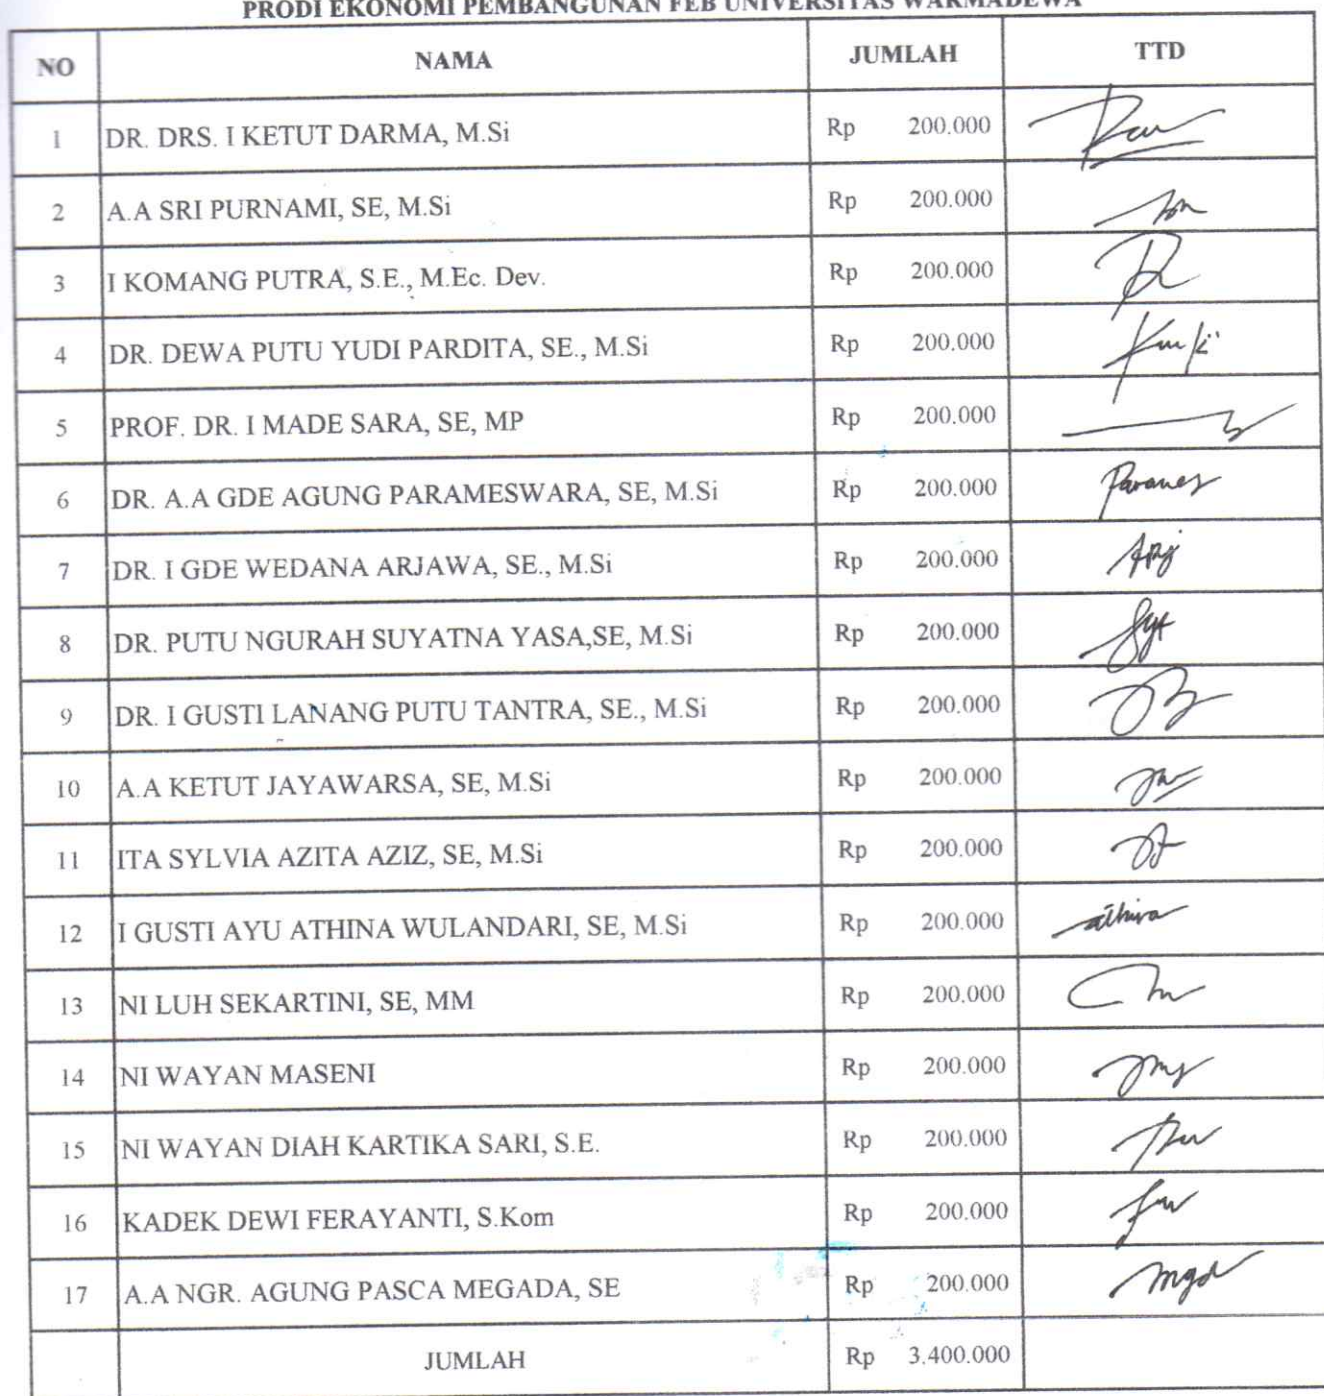 PRODI EKONOMI PEMBANGUNAN FEB UNIVERSITAS WARMADEWA
NO NAMA JUMLAH TTD
1 DR. DRS. I KETUT DARMA, M.Si Rp 200.000
2 A.A SRI PURNAMI, SE, M.Si Rp 200.000
3 I KOMANG PUTRA, S.E., M.Ec. Dev. Rp 200.000
4 DR. DEWA PUTU YUDI PARDITA, SE., M.Si Rp 200.000
5 PROF. DR. I MADE SARA, SE, MP Rp 200.000
6 DR. A.A GDE AGUNG PARAMESWARA, SE, M.Si Rp 200.000
7 DR. I GDE WEDANA ARJAWA, SE., M.Si Rp 200.000
8 DR. PUTU NGURAH SUYATNA YASA,SE, M.Si Rp 200.000
9 DR. I GUSTI LANANG PUTU TANTRA, SE., M.Si Rp 200.000
10 A.A KETUT JAYAWARSA, SE, M.Si Rp 200.000
11 ITA SYLVIA AZITA AZIZ, SE, M.Si Rp 200.000
12 I GUSTI AYU ATHINA WULANDARI, SE, M.Si Rp 200.000 athina
13 NI LUH SEKARTINI, SE, MM Rp 200.000
14 NI WAYAN MASENI Rp 200.000
15 NI WAYAN DIAH KARTIKA SARI, S.E. Rp 200.000
16 KADEK DEWI FERAYANTI, S.Kom Rp 200.000
17 A.A NGR. AGUNG PASCA MEGADA, SE Rp 200.000
JUMLAH Rp 3.400.000